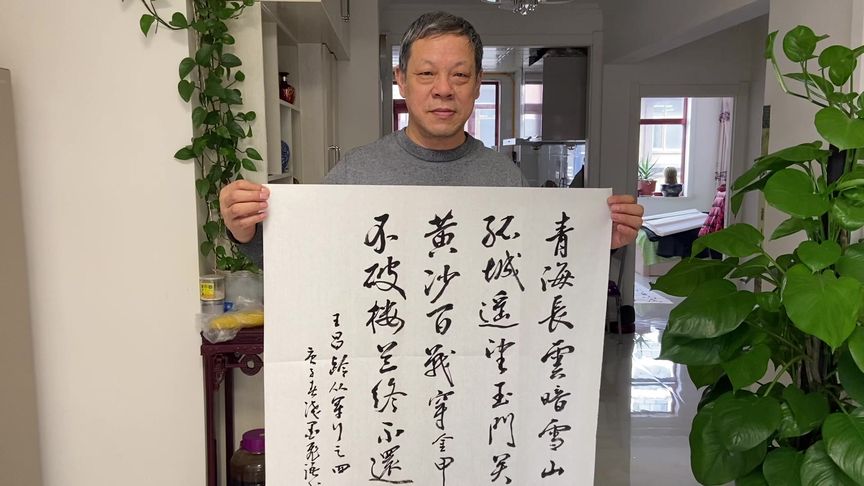 青海長雲暗雪山
孤城遥望玉門关
黄沙百戰穿金甲
不破楼兰终不還
王昌龄从军行之四
庚子春